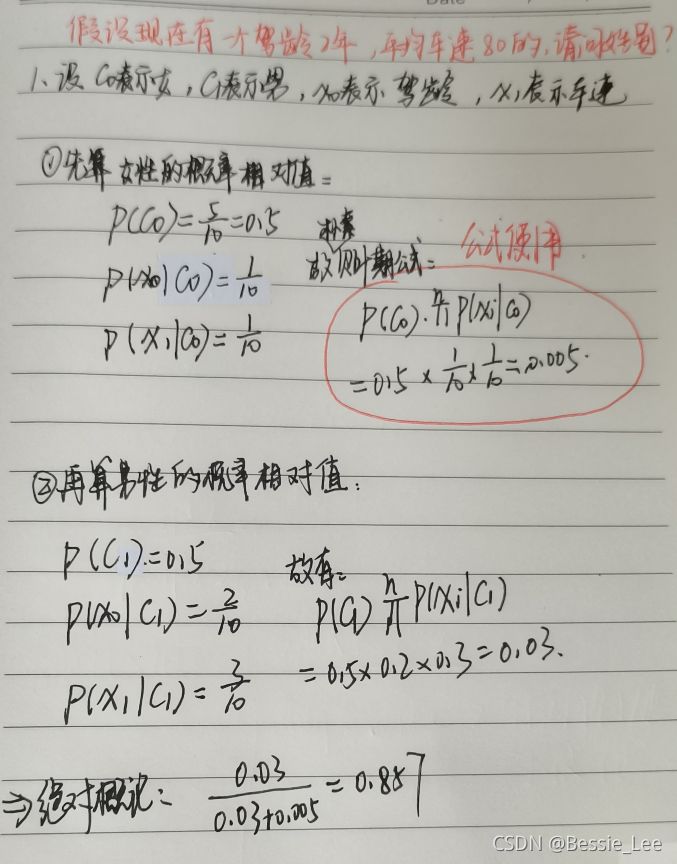 Date
假设现在有一个驾龄2年，平均车速80的，请问性别？
1、设C0表示女，C1表示男，x0表示驾龄，x1表示车速
①先算女性的概率相对值：
P(C0)=5/10=0.5
P(x0|C0)=1/10
P(x1|C0)=1/10
朴素
故贝叶斯公式：
公式使用
P(C0)·∏ⁿP(xi|C0)
=0.5×1/10×1/10=0.005.
②再算男性的概率相对值：
P(C1)=0.5
P(x0|C1)=2/10
P(x1|C1)=3/10
故有：
P(C1)∏ⁿP(xi|C1)
=0.5×0.2×0.3=0.03.
⇒绝对概论：0.03/(0.03+0.005)=0.857
CSDN @Bessie_Lee